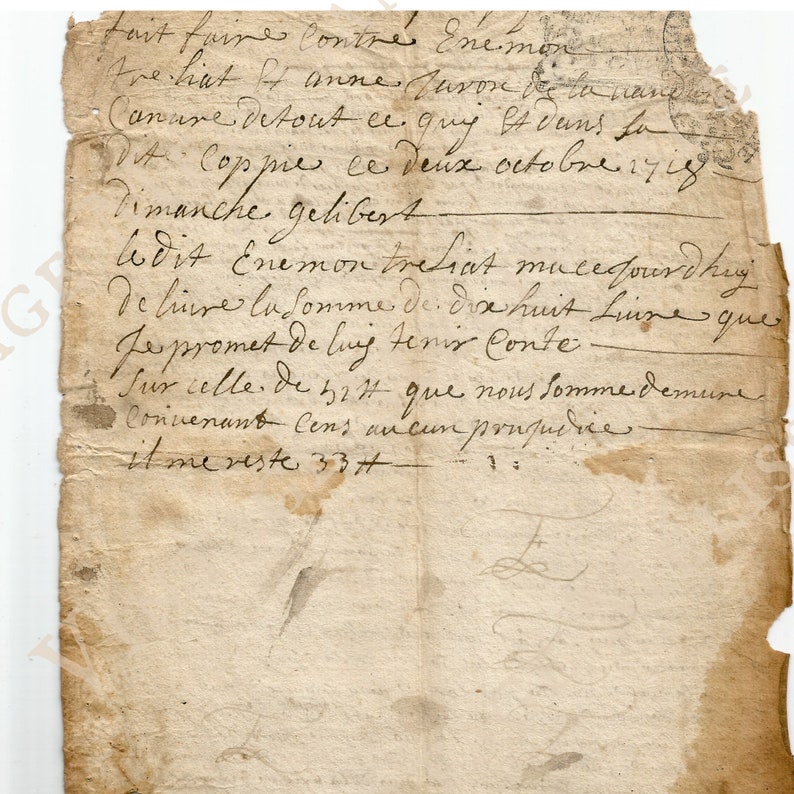 fait faire Contre Enemon
treliat Et anne Javon de la
Cancire detout ce quy Et dans la
dit Coppie ce deux octobre 1718
dimanche gelibert
le dit Enemon treliat mace Jourdhuy
delivre la Somme de dix huit Livre que
Je promet de luy tenir Conte
Sur celle de 51 tt que nous Somme demure
Convenant Cens aucun prujudice
il me reste 33 tt